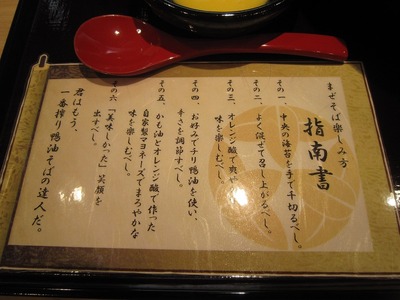 まぜそば楽しみ方
指南書
その一、中央の海苔を手で千切るべし。
その二、よく混ぜて召し上がるべし。
その三、オレンジ酸で爽
味を楽しむべし。
その四、お好みでチリ鴨油を使い、
辛さを調節すべし。
その五、かも油とオレンジ酸で作った
自家製マヨネーズでまろやかな
味を楽しむべし。
その六、「美味しかった」笑顔を
出すべし。
君はもう、
一番搾り鴨油そばの達人だ。